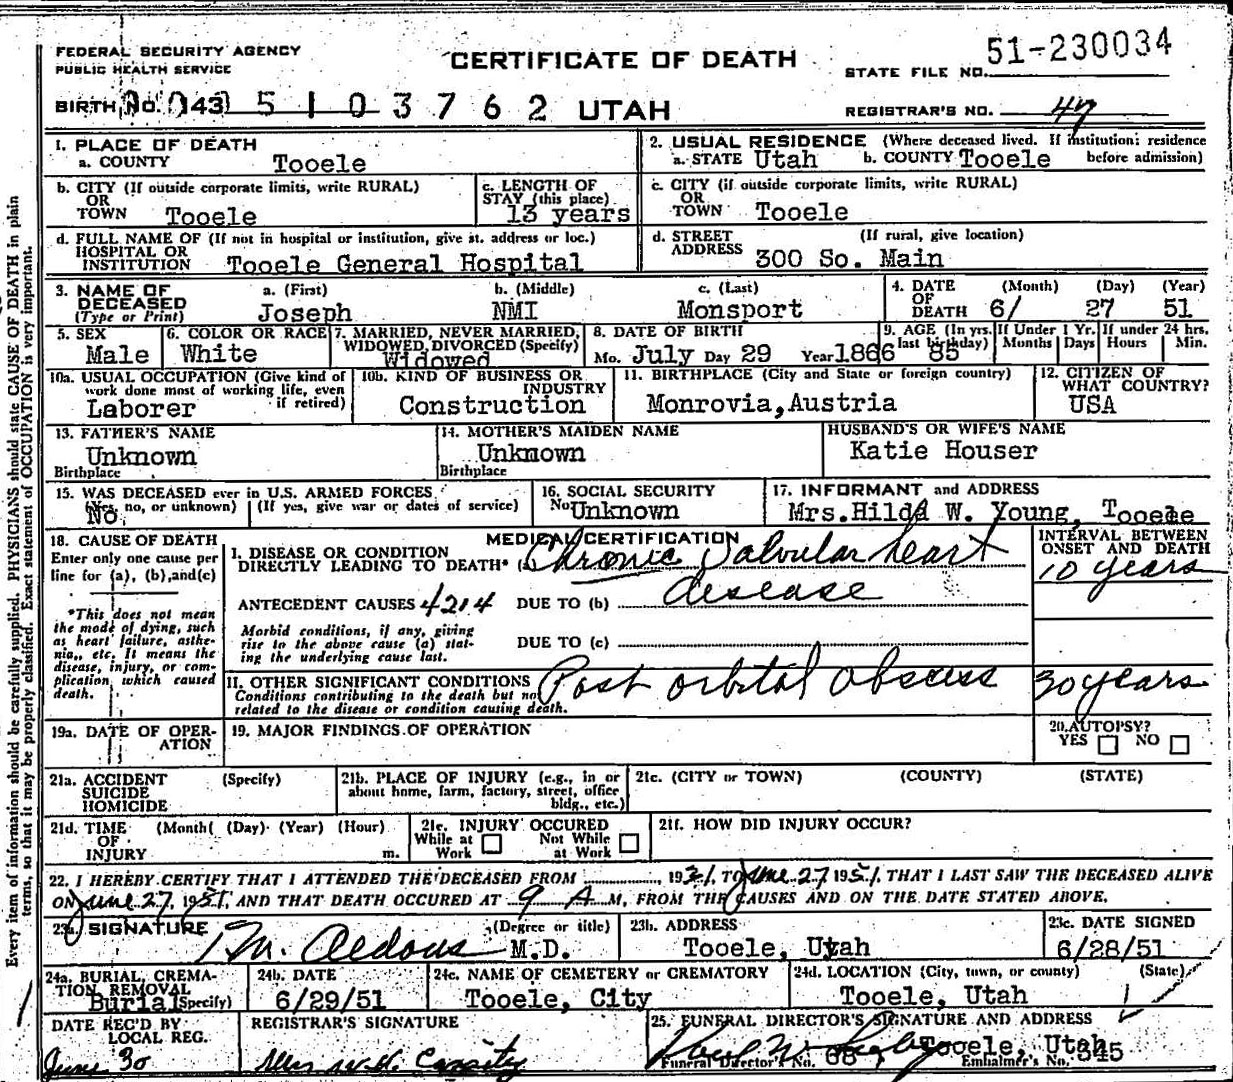 FEDERAL SECURITY AGENCY
PUBLIC HEALTH SERVICE
CERTIFICATE OF DEATH
STATE FILE NO. 51-230034
BIRTH NO. 143 5103762 UTAH
REGISTRAR'S NO.
1. PLACE OF DEATH
a. COUNTY Tooele
2. USUAL RESIDENCE (Where deceased lived. If institution: residence before admission)
a. STATE Utah b. COUNTY Tooele
b. CITY (If outside corporate limits, write RURAL)
OR
TOWN Tooele
c. LENGTH OF
STAY (this place)
13 years
c. CITY (if outside corporate limits, write RURAL)
OR
TOWN Tooele
d. FULL NAME OF (If not in hospital or institution, give st. address or loc.)
HOSPITAL OR
INSTITUTION Tooele General Hospital
d. STREET (If rural, give location)
ADDRESS 300 So. Main
3. NAME OF
DECEASED
(Type or Print)
a. (First) b. (Middle) c. (Last)
Joseph NMI Monsport
4. DATE
OF
DEATH
(Month) (Day) (Year)
6/ 27 51
5. SEX
Male
6. COLOR OR RACE
White
7. MARRIED, NEVER MARRIED,
WIDOWED, DIVORCED (Specify)
Widowed
8. DATE OF BIRTH
Mo. July Day 29 Year 1866
9. AGE (In yrs.
last birthday) 85
If Under 1 Yr.
Months Days
If under 24 hrs.
Hours Min.
10a. USUAL OCCUPATION (Give kind of
work done most of working life, even
if retired)
Laborer
10b. KIND OF BUSINESS OR
INDUSTRY
Construction
11. BIRTHPLACE (City and State or foreign country)
Monrovia, Austria
12. CITIZEN OF
WHAT COUNTRY?
USA
13. FATHER'S NAME
Unknown
Birthplace
14. MOTHER'S MAIDEN NAME
Unknown
Birthplace
HUSBAND'S OR WIFE'S NAME
Katie Houser
15. WAS DECEASED ever in U.S. ARMED FORCES
(Yes, no, or unknown) (If yes, give war or dates of service)
No
16. SOCIAL SECURITY
No. Unknown
17. INFORMANT and ADDRESS
Mrs. Hilda W. Young, Tooele
18. CAUSE OF DEATH
Enter only one cause per
line for (a), (b), and (c)
*This does not mean
the mode of dying, such
as heart failure, asthe-
nia,, etc. It means the
disease, injury, or com-
plication which caused
death.
MEDICAL CERTIFICATION
I. DISEASE OR CONDITION
DIRECTLY LEADING TO DEATH* (a) Chronic Valvular heart
disease
ANTECEDENT CAUSES 4214 DUE TO (b)
Morbid conditions, if any, giving
rise to the above cause (a) stat-
ing the underlying cause last.
DUE TO (c)
INTERVAL BETWEEN
ONSET AND DEATH
10 years
II. OTHER SIGNIFICANT CONDITIONS
Conditions contributing to the death but no
related to the disease or condition causing death.
Post orbital abscess 30 years
19a. DATE OF OPER-
ATION
19. MAJOR FINDINGS OF OPERATION
20. AUTOPSY?
YES NO
21a. ACCIDENT (Specify)
SUICIDE
HOMICIDE
21b. PLACE OF INJURY (e.g., in or
about home, farm, factory, street, office
bldg., etc.)
21c. (CITY or TOWN) (COUNTY) (STATE)
21d. TIME (Month( (Day) (Year) (Hour)
OF
INJURY m.
21e. INJURY OCCURED
While at Not While
Work at Work
21f. HOW DID INJURY OCCUR?
22. I HEREBY CERTIFY THAT I ATTENDED THE DECEASED FROM 1931, TO June 27 1951, THAT I LAST SAW THE DECEASED ALIVE
ON June 27, 1951, AND THAT DEATH OCCURED AT 9 A M, FROM THE CAUSES AND ON THE DATE STATED ABOVE.
23a. SIGNATURE (Degree or title)
M. Aldous M.D.
23b. ADDRESS
Tooele, Utah
23c. DATE SIGNED
6/28/51
24a. BURIAL, CREMA-
TION REMOVAL
Burial (Specify)
24b. DATE
6/29/51
24c. NAME OF CEMETERY or CREMATORY
Tooele, City
24d. LOCATION (City, town, or county) (State)
Tooele, Utah
DATE REC'D BY
LOCAL REG.
June 30
REGISTRAR'S SIGNATURE
25. FUNERAL DIRECTOR'S SIGNATURE AND ADDRESS
Tooele, Utah
Funeral Director's No. 68 Embalmer's No. 345
Every item of information should be carefully supplied. PHYSICIANS should state CAUSE OF DEATH in plain
terms, so that it may be properly classified. Exact statement of OCCUPATION is very important.